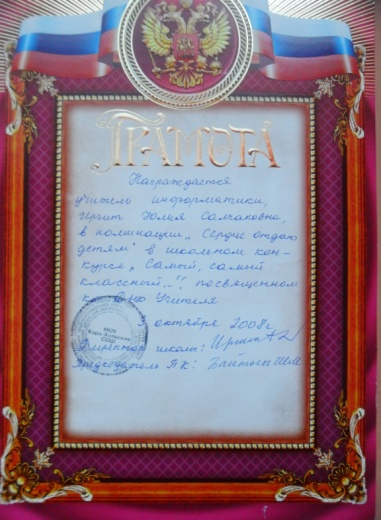 ГРАМОТА
Награждается
учитель информатики,
Иргит Юлия Салчаковна,
в номинации „Сердце отдаю
детям" в школьном кон-
курсе „Самый, самый
классный..." посвященном
ко Дню Учителя
октября 2008г
Директор школы:
председатель ПК:
МОУ
СОШ